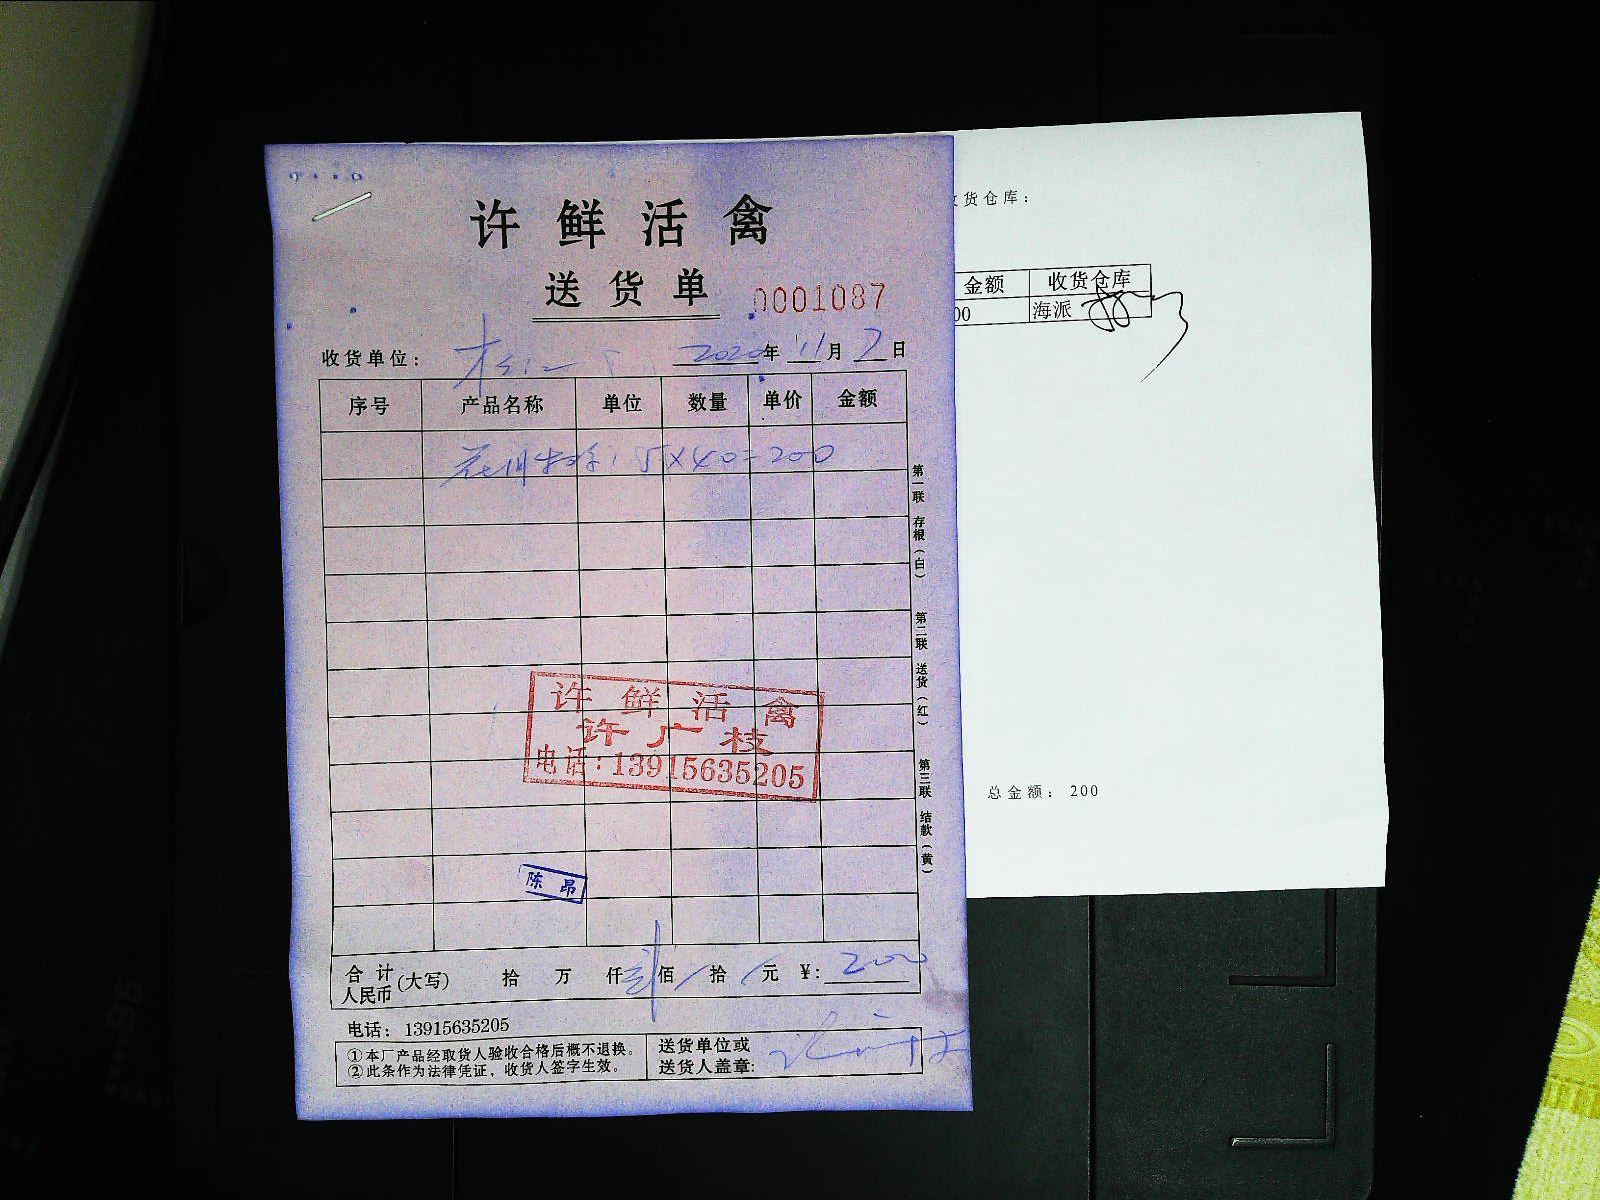 许鲜活禽
送货单
0001087
收货单位：
2020年11月7日
序号 产品名称 单位 数量 单价 金额
5×40=200
第一联 存根（白）
第二联 送货（红）
第三联 结款（黄）
许鲜活禽
许广枝
电话：13915635205
陈昂
合计人民币（大写） 拾 万 仟 贰佰 拾 元 ¥：200
电话：13915635205
①本厂产品经取货人验收合格后概不退换。
②此条作为法律凭证，收货人签字生效。
送货单位或
送货人盖章：
货仓库：
金额 收货仓库
00 海派
总金额：200